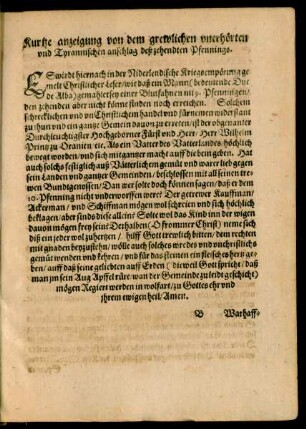 Kurtze anzeigung von dem grewlichen vnerhörten
vnd Tyrannischen anschlag deß zehendten Pfennings.
ES wirdt hiernach in der Niderlendische Kriegsempörung ge-
melt Christlicher Leser / wie daß ein Mann (bedeutende Duc
de Alba) gemahlet sey einer Blutfahnen mit 9. Pfenningen /
den zehenden aber nicht künden noch erreichen. Solchem
schrecklichen vnd vn Christlichem handel vnd fürnemen widerstant
zu thun vnd ein gantz Gemein dauon zu erreten / ist der obgenande
Durchleuchtigster Hochgeborner Fürst vnd Herr / Herr Wilhelm
Printz zu Oranien etc. Als ein Vatter des Vatterlandes höchlich
bewegt worden / vnd sich mit gantzer macht auff die bein geben. Hat
auch solchs festiglich auß Vätterlichem gemüt vnd warer lieb gegen
sein Landen vnd gantzer Gemeinden / beschlossen mit all seinen trew-
wen Bundtgenossen / Dan wer solte doch können sagen / daß es dem
10. Pfenning nicht vnderworffen were? Der getrewer Kauffman /
Ackerman / vnd Schiffman mögen wol schreien vnd sich höchlich
beklagen / aber sinds diese allein? Solte wol das Kind inn der wigen
dauon mögen frey sein? Derhalben (O frommer Christ) neme sich
diß ein jeder wol zu hertzen / hilff Gott trewlich bitten / den rechten
mit gnaden bezustehn / wölle auch solches wredes vnd vnchristlichs
gemüt wenden vnd kehren / vnd für das steinen ein fleischens hertz ge-
ben / auff daß seine geliebten auff Erden (dieweil Gott spricht / daß
man jm sein Aug Apffel rüre / wan der Gemeinde zu leidt geschicht)
mögen Regiert werden in wolfart / zu Gottes ehr vnd
jhrem ewigen heil / Amen.
B Warhaff-